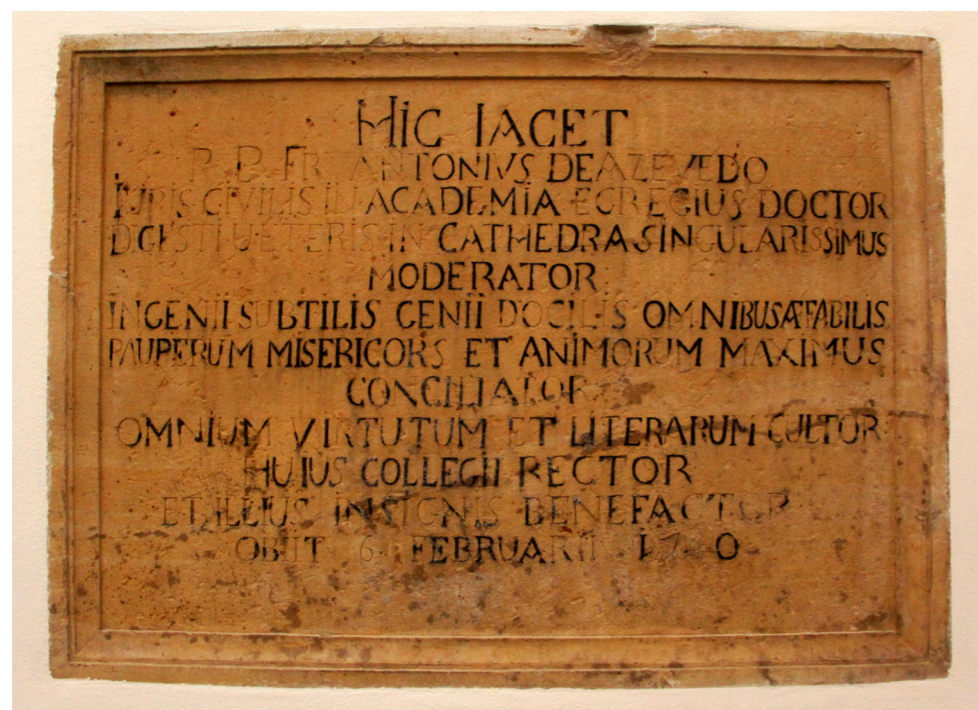 HIC IACET
R. P. FR. ANTONIVS DE AZEVÆDO
IURIS CIVILIS IN ACADEMIA EGREGIUS DOCTOR
DIGESTI UETERIS IN CATHEDRA SINGULARISSIMUS
MODERATOR
INGENII SUBTILIS GENII DOCILIS OMNIBUS ÆFABILIS
PAUPERUM MISERICORS ET ANIMORUM MAXIMUS
CONCILIATOR
OMNIUM VIRTUTUM ET LITERARUM CULTOR
HUIUS COLLEGII RECTOR
ET ILLIUS INSIGNIS BENEFACTOR
OBIIT 6 FEBRUARII